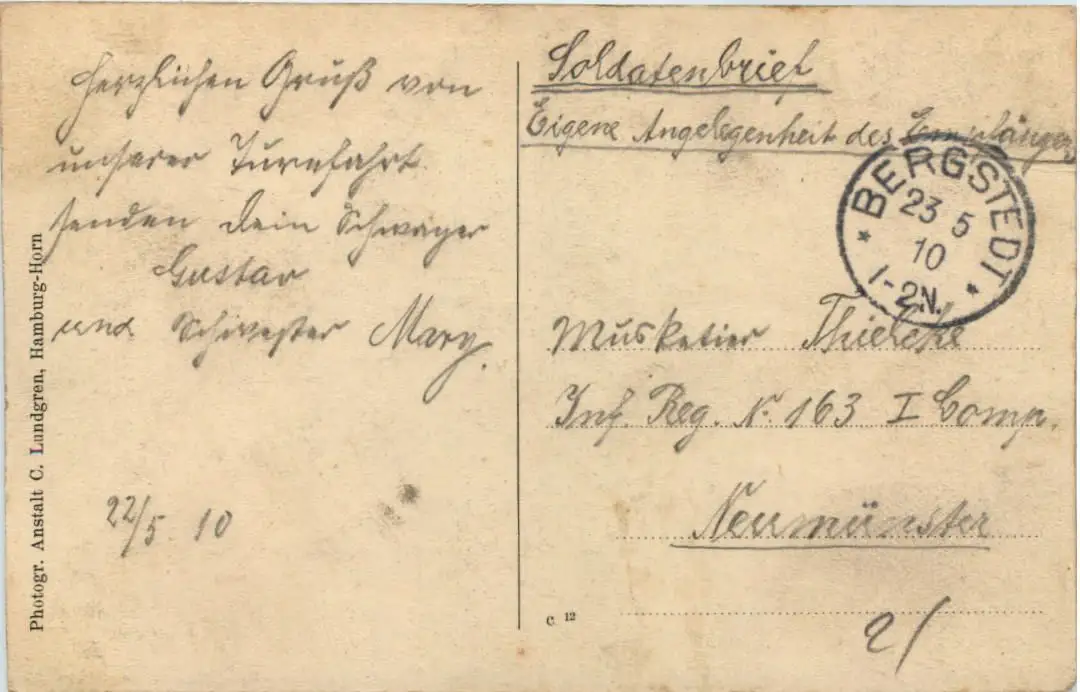 Herzlichen Gruß von
unserer Turnfahrt
senden Dein Schwager
Gustav
und Schwester Mary.
22/5 10
Photogr. Anstalt C. Lundgren, Hamburg-Horn
C. 12
Soldatenbrief
Eigene Angelegenheit des Empfängers
BERGSTEDT
23 5
10
1-2N.
Musketier Thielcke
Inf. Reg. N. 163 I Comp.
Neumünster
2/